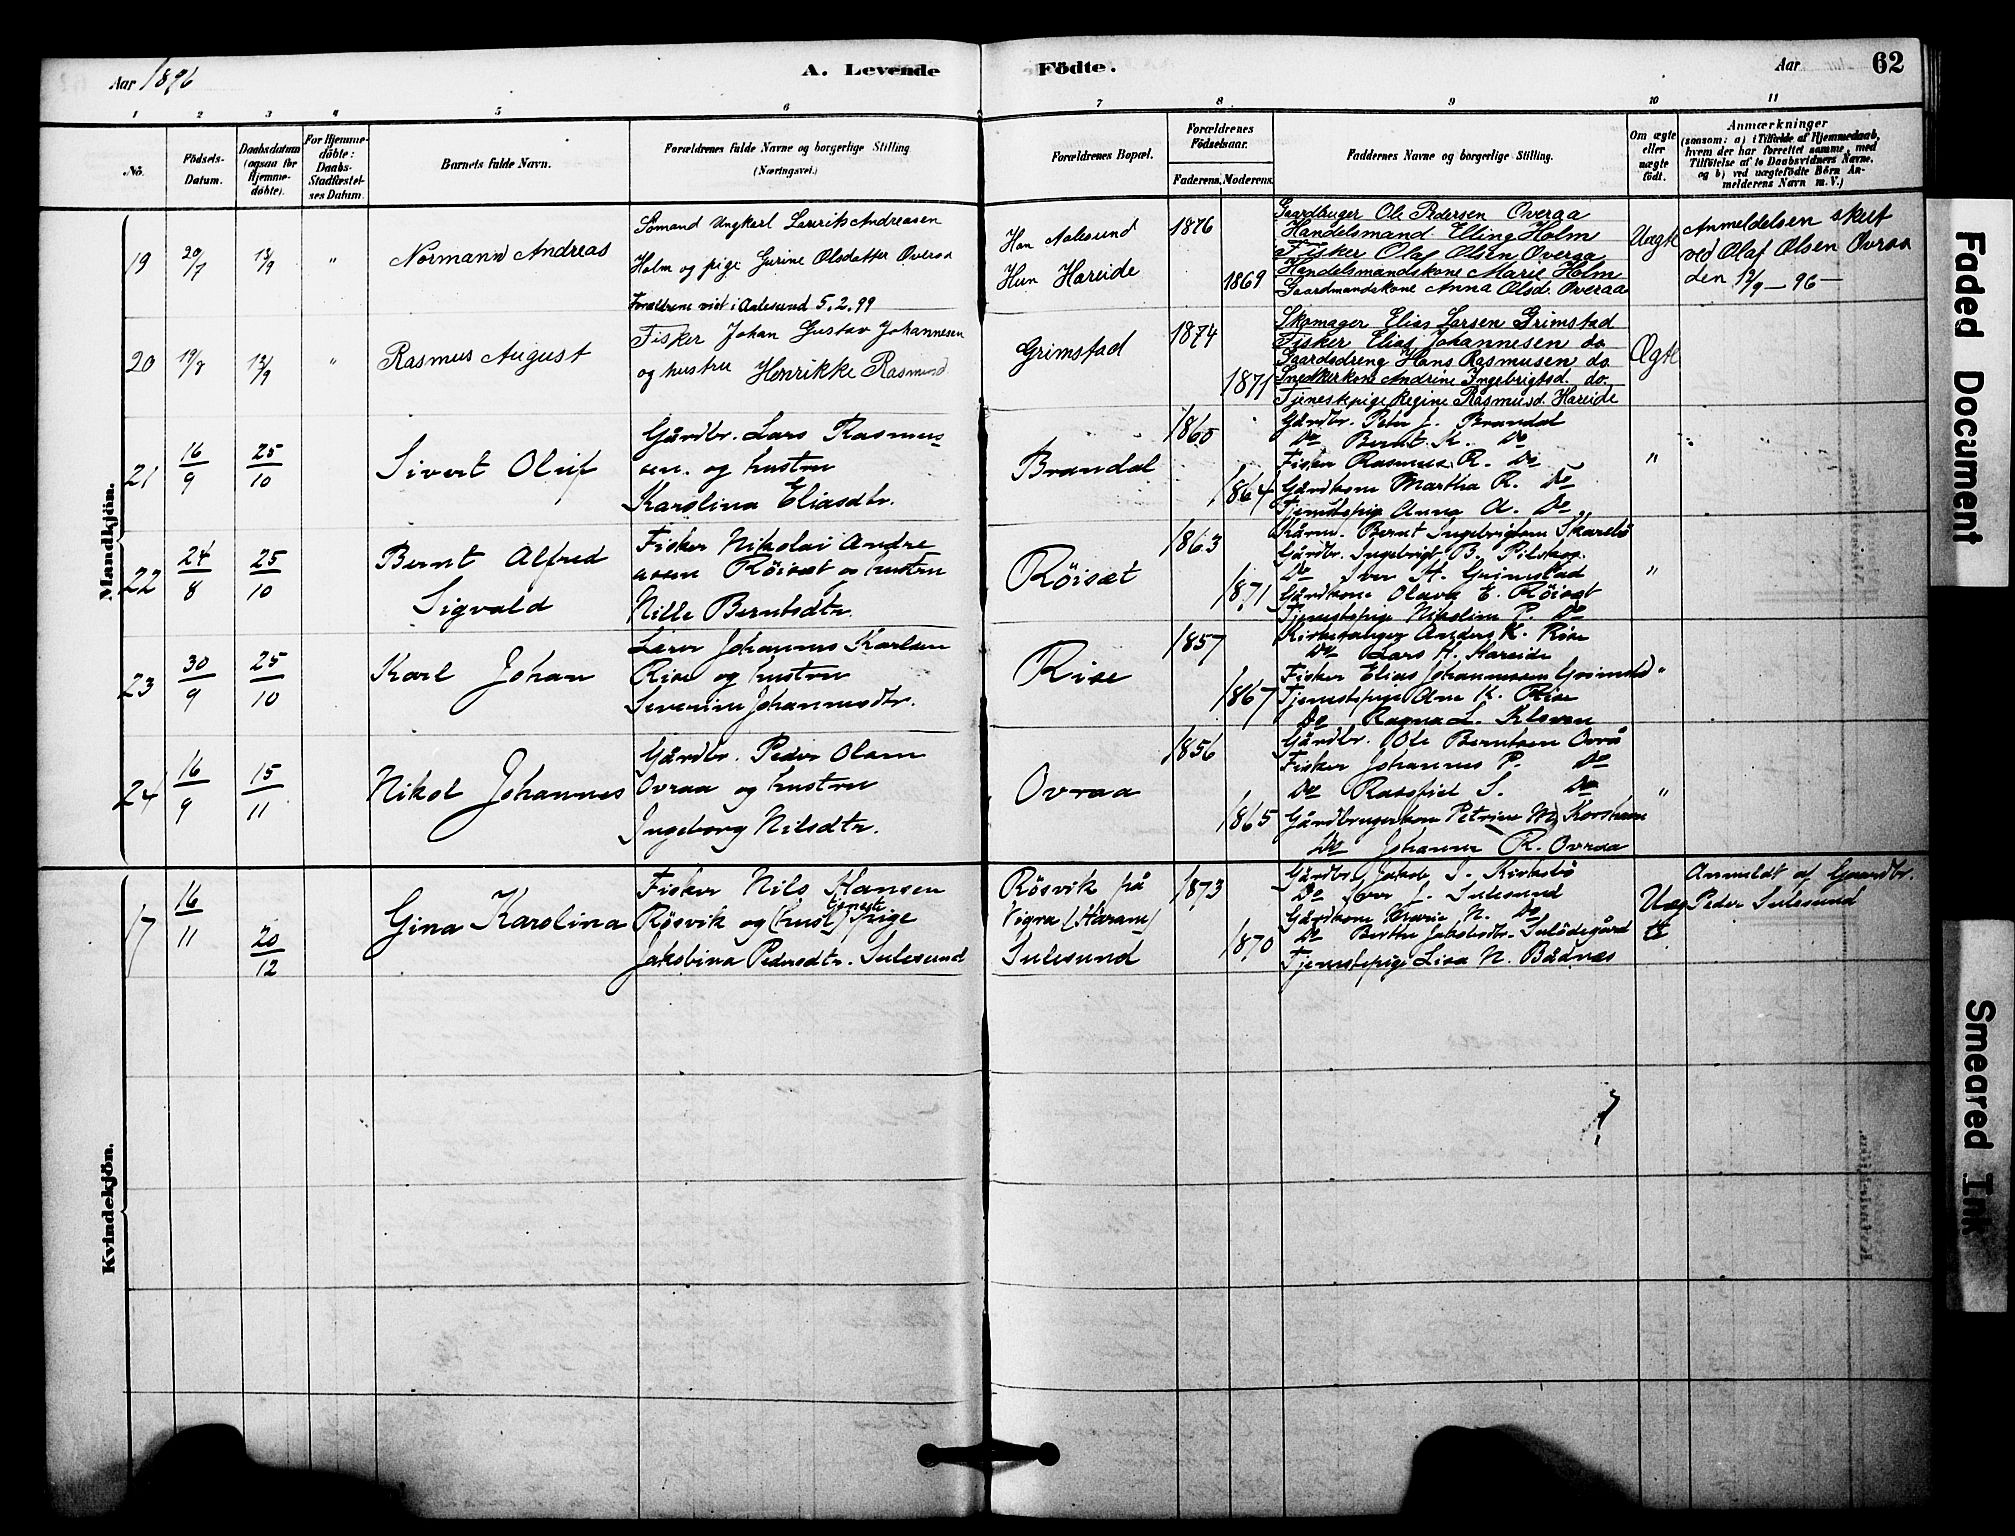 Aar 1896
A. Levende
Födte.
Aar
62
1 2 3 4 5 6 7 8 9 10 11
No.
Födsels-Datum.
Daabsdatum (ogsaa for Hjemme-döbte).
For Hjemme-döbte: Daabs-Stadfæstel-ses Datum.
Barnets fulde Navn.
Forældrenes fulde Navne og borgerlige Stilling
(Næringsvei.)
Forældrenes Bopæl.
Forældrenes Födselsaar.
Faderens. Moderens.
Faddernes Navne og borgerlige Stilling.
Om ægte eller uægte födt.
Anmærkninger
(saasom: a) i Tilfælde af Hjemmedaab, hvem der har forrettet samme, med Tilföielse af to Daabsvidners Navne, og b) ved uægtefödte Börn An-melderens Navn m. V.)
Mandkjön.
19
20/7
13/9
"
Normann Andreas
Sömand Ungkarl Laurits Andreasen
Holm og pige Gurine Olsdatter Overaa
Forældrene viet i Aalesund 5.2.99
Han Aalesund
Hun Hareide
1876
1869
Gaardbruger Ole Pedersen Overaa
Handelsmand Elling Holm
Fisker Olaf Olsen Overaa
Handelsmandskone Marie Holm
Gaardmandskone Anna Olsd. Overaa
Uægte
Anmeldelsen skeet
ved Olaf Olsen Overaa
den 13/9 - 96 -
20
19/7
13/9
"
Rasmus August
Fisker Johan Gustav Johannesen
og hustru Henrikke Rasmusd
Grimstad
1874
1871
Skomager Elias Larsen Grimstad
Fisker Elias Johannesen do
Gaardsdreng Hans Rasmusen do.
Snedkerkone Andrine Ingebrigtsd. do.
Tjenestepige Regine Rasmusd. Hareide
Ægte
21
16/9
25/10
Sivert Oluf
Gårdbr. Lars Rasmus-
sen. og hustru
Karolina Eliasdtr.
Brandal
1860
1864
Gårdbr. Peter J. Brandal
Do Bernt K. Do
Fisker Rasmus R. Do
Gårdkone Martha R. Do
Tjenestepige Anna A. Do
"
22
24/8
25/10
Bernt Alfred
Sigvald
Fisker Nikolai Andre
assen Röisæt og hustru
Nille Berntsdtr.
Röisæt
1863
1871
Kårm. Bernt Ingebrigtsen Skarebö
Gårdbr. Ingebrigt B. Pilskog
Do Iver H. Grimstad
Gårdkone Olava E. Röisæt
Tjenestepige Nikoline P. Do
"
23
30/9
25/10
Karl Johan
Lærer Johannes Karlsen
Rise og hustru
Severine Johannesdtr.
Rise
1857
1867
Kirkesanger Anders K. Rise
Do Lars H. Hareide
Fisker Elias Johannessen Grimstad
Tjenestepige Ane K. Rise
Do Ragna L. Kleven
"
24
16/9
15/11
Nikol Johannes
Gårdbr. Peder Olsen
Ovraa og hustru
Ingeborg Nilsdtr.
Ovraa
1856
1865
Gårdbr. Ole Berntsen Ovrå
Fisker Johannes P. Do
Do S. Do
Gårdbrugerkone Petrine
Do Johanne R. Ovraa
"
Kvindekjön.
17
16/11
20/12
Gina Karolina
Fisker Nils Hansen
Rösvik og (hust) tjeneste pige
Jakobina Pedersdtr. Sulesund
Rösvik på
Vigra (Haram)
Sulesund
1873
1870
Gårdbr. Jakob S. Kirkebö
Do Iver J. Sulesund
Gårdkone N. Do
Do Berthe Jakobsdtr. Sulödegård
Tjenestepige Lisa N. Bådnæs
Uæg
te
Anmeldt af Gaardbr.
Peder Sulesund
Faded Document
Smeared Ink